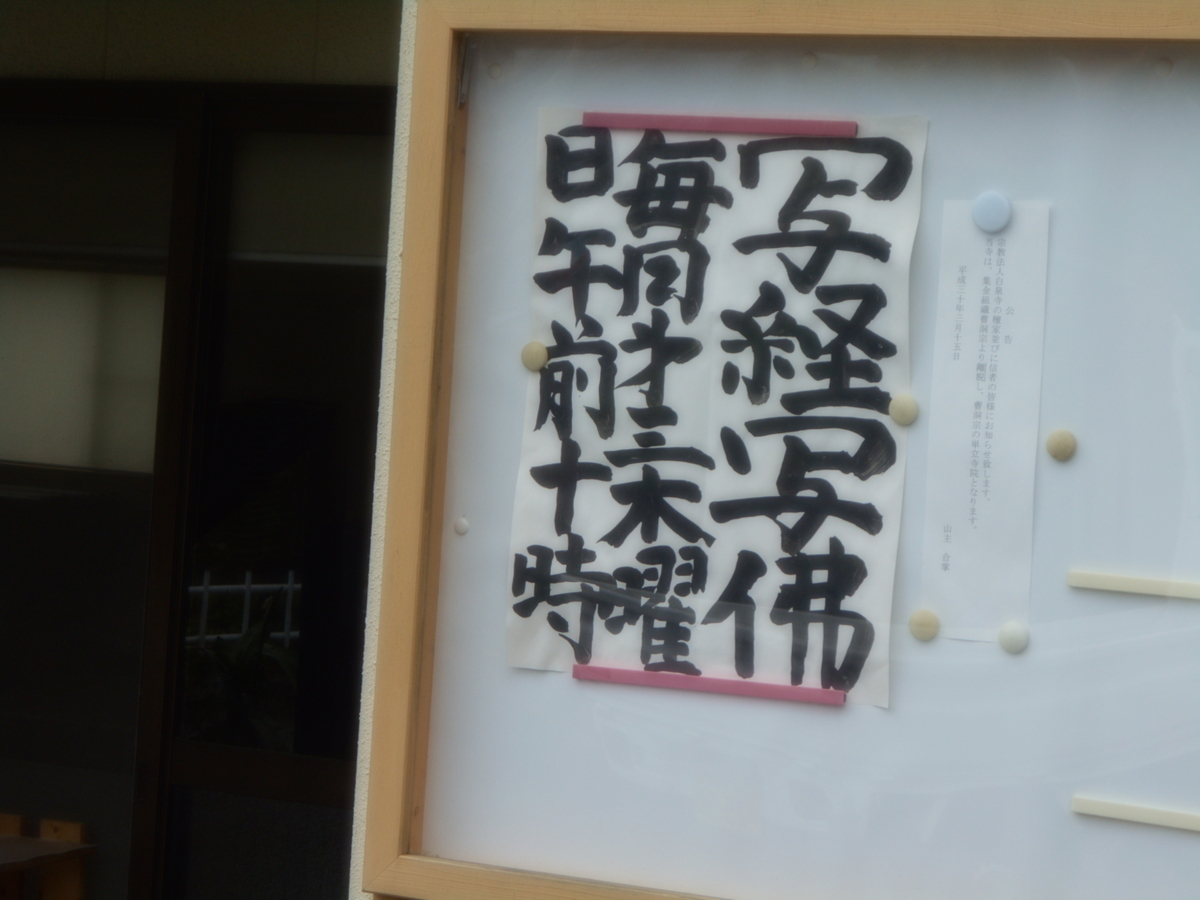 写経写佛
毎月才三木曜
日午前十時
公告
宗教法人白泉寺の檀家並びに信者の皆様にお知らせ致します。
当寺は、集金組織曹洞宗より離脱し、曹洞宗の単立寺院となります。
平成三十年三月十五日
山主